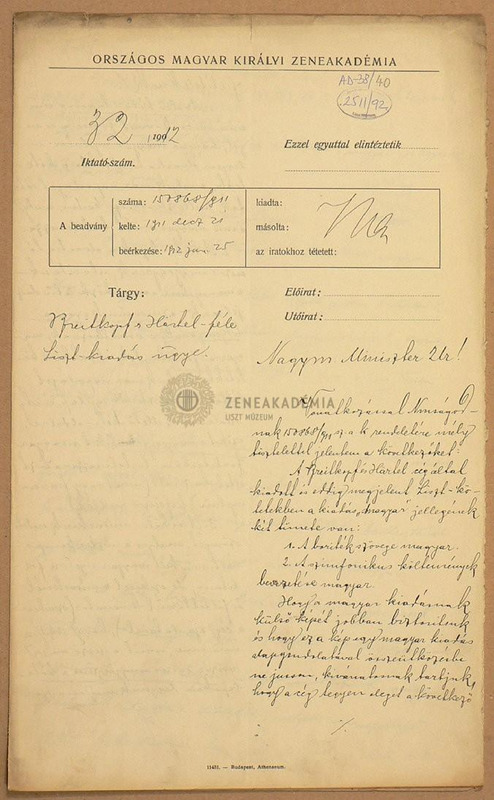 ORSZÁGOS MAGYAR KIRÁLYI ZENEAKADÉMIA
AD-38/40
2511/92
32 1912
Iktató-szám.
Ezzel egyuttal elintéztetik
A beadvány
száma: 157868/911
kelte: 1911 dec 21
beérkezése: 1912 jan. 25
kiadta:
másolta:
az iratokhoz tétetett:
Tárgy:
Breitkopf s Härtel-féle
Liszt-kiadás ügye.
Előirat:
Utóirat:
Nagym Miniszter Úr!
ZENEAKADÉMIA
LISZT MÚZEUM
Vonatkozással Nmságod-
nak 157868/911 sz. a. k. rendeletére mély
tisztelettel jelentem a következőket:
A Breitkopf és Härtel cég által
kiadott és eddig megjelent Liszt-kö-
tetekben a kiadás "magyar" jellegének
két tünete van:
1. A boríték szövege magyar.
2. A szimfonikus költemények
bevezetése magyar.
Hogy a magyar kiadásnak
külső képét jobban biztosítsuk
és hogy ez a kép egy magyar kiadás
alapgondolatával összeütközésbe
ne jusson, kívánatosnak tartjuk,
hogy a cég tegyen eleget a következő
./.
11431. — Budapest, Athenaeum.